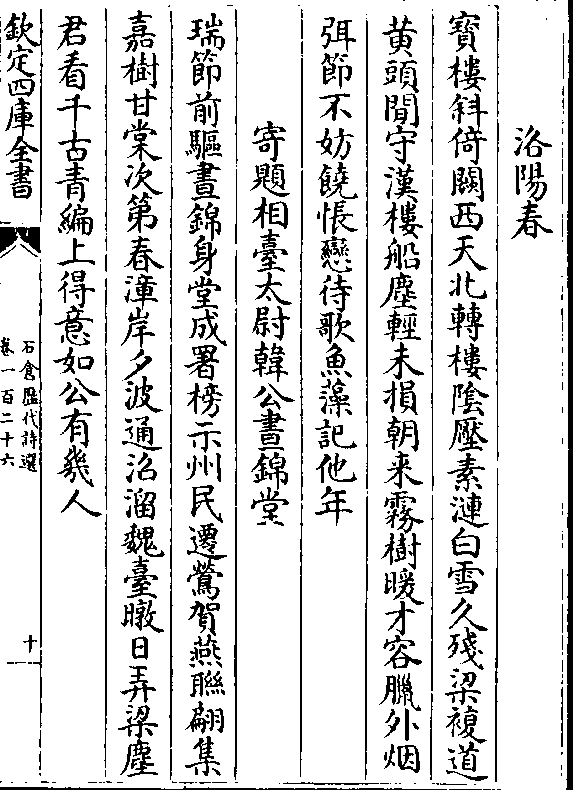 洛陽春
寳樓斜倚闕西天北轉樓陰壓素漣白雪久殘梁複道
黄頭閒守漢樓船塵輕未損朝来霧樹暖才容臘外烟
弭節不妨饒悵戀待歌魚藻記他年
寄題相臺太尉韓公晝錦堂
瑞節前驅晝錦身堂成署榜示州民遷鶯賀燕聯翩集
嘉樹甘棠次第春漳岸夕波通沼溜魏臺暾日弄梁塵
君看千古青編上得意如公有幾人
欽定四庫全書
石倉歷代詩選
卷一百二十六
十